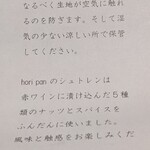 なるべく生地が空気に触れ
るのを防ぎます。そして湿
気の少ない涼しい所で保管
してください。
hori pan のシュトレンは
赤ワインに漬け込んだ5種
類のナッツとスパイスを
ふんだんに使いました。
風味と触感をお楽しみくだ